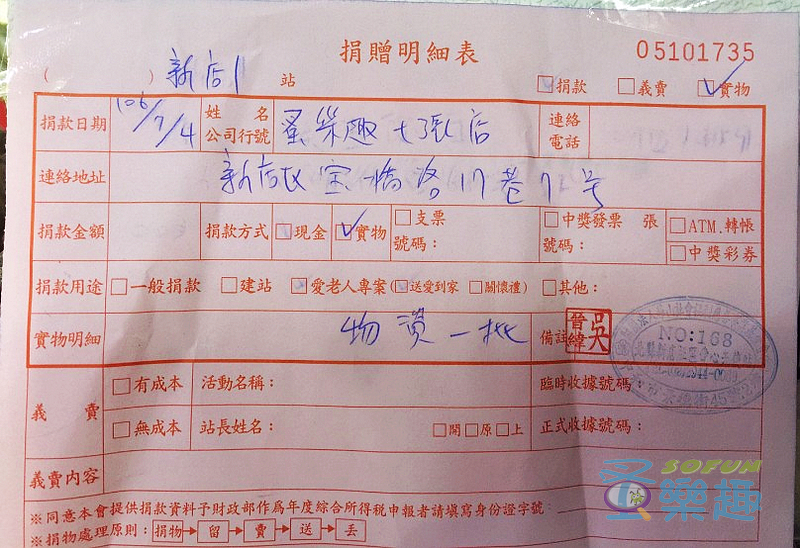 捐贈明細表
05101735
( ) 新店1 站 □捐款 □義賣 ☑實物
捐款日期 106/7/4 姓名 公司行號 蛋樂趣七張店 連絡電話
連絡地址 新店區寶橋路17巷7號
捐款金額 捐款方式 □現金 ☑實物 □支票 號碼: □中獎發票 張 號碼: □ATM.轉帳 □中獎彩券
捐款用途 □一般捐款 □建站 □愛老人專案(□送愛到家 □關懷禮) □其他:
實物明細 物資一批 備註 吳晉緯
NO:168
義賣 □有成本 活動名稱: 臨時收據號碼:
□無成本 站長姓名: □開□原□上 正式收據號碼:
義賣內容
SOFUN
蛋樂趣
※同意本會提供捐款資料予財政部作為年度綜合所得稅申報者請填寫身份證字號:
※捐物處理原則: 捐物→留→賣→送→丟